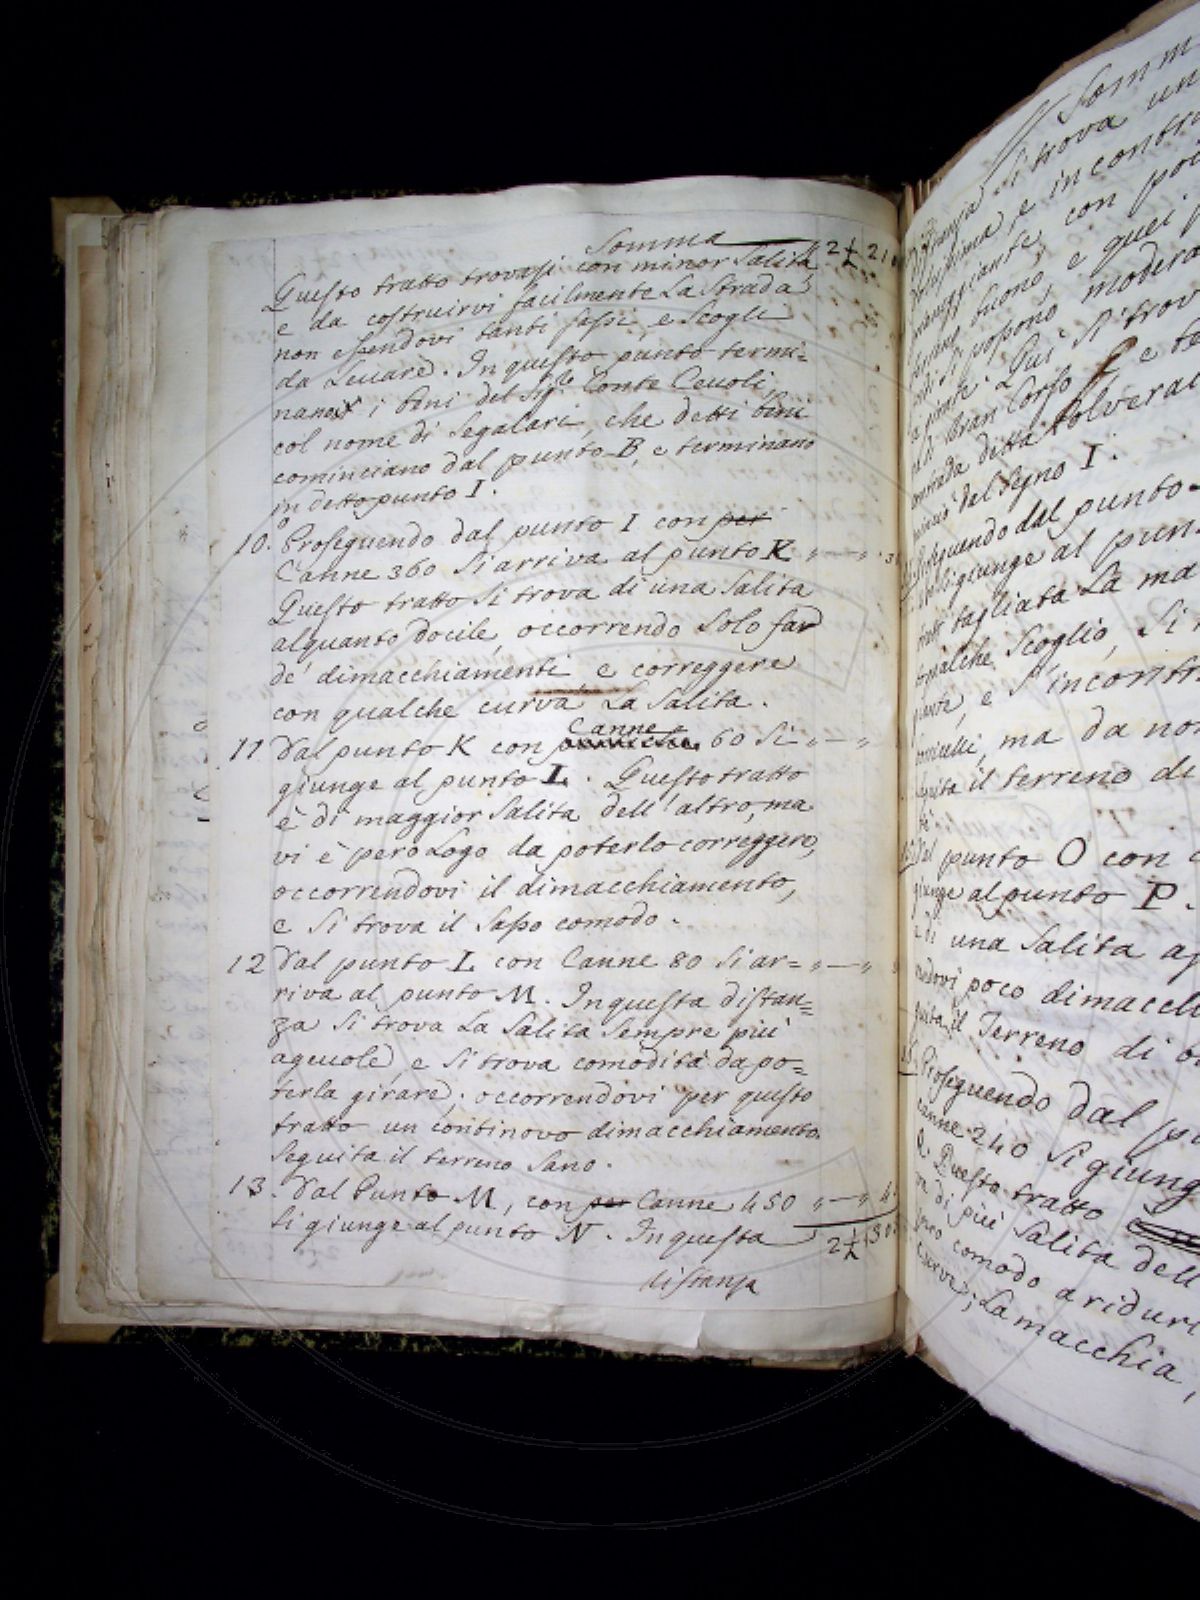 Somma 2 1/2 21
Questo tratto trovasi con minor Salita
e da costruirvi facilmente La Strada
non essendovi tanti sassi, e Scogli
da Levare. In questo punto termi=
nano i beni del Sig.re Conte Cevoli,
col nome di Segalari, che detti beni
cominciano dal punto B, e terminano
in detto punto I.
10. Proseguendo dal punto I con per
Canne 360 Si arriva al punto K „—„ 3
Questo tratto Si trova di una Salita
alquanto docile, occorrendo Solo far
de' dimacchiamenti e correggere
con qualche curva La Salita.
11 Dal punto K con Canne 60 Si „—„
giunge al punto L. Questo tratto
è di maggior Salita dell'altro, ma
vi è però Logo da poterlo correggere,
occorrendovi il dimacchiamento,
e Si trova il Sasso comodo.
12 Dal punto L con Canne 80 Si ar= „—„
riva al punto M. In questa distan=
za Si trova La Salita Sempre più
agevole, e Si trova comodità da po=
terla girare, occorrendovi per questo
tratto un continovo dimacchiamento.
Seguita il terreno Sano.
13. Dal Punto M, con per Canne 450 „—„ 4
Si giunge al punto N. In questa
2 1/2 30
distanza
Somm
distanza Si trova un
e incontra
con
buono, e quei
Si possono modera
Qui Si trov
Gran Corso e te
contrada detta Polverai
del Segno I.
Proseguendo dal punto
giunge al pun
tagliata La ma
qualche Scoglio, Si
e S'incontr
ma da non
il terreno di
Dal punto O con
giunge al punto P.
di una Salita
poco dimacch
il Terreno di
Proseguendo dal
Canne 240 Si giung
Questo tratto
di più Salita dell
comodo a ridur
curve; La macchia,